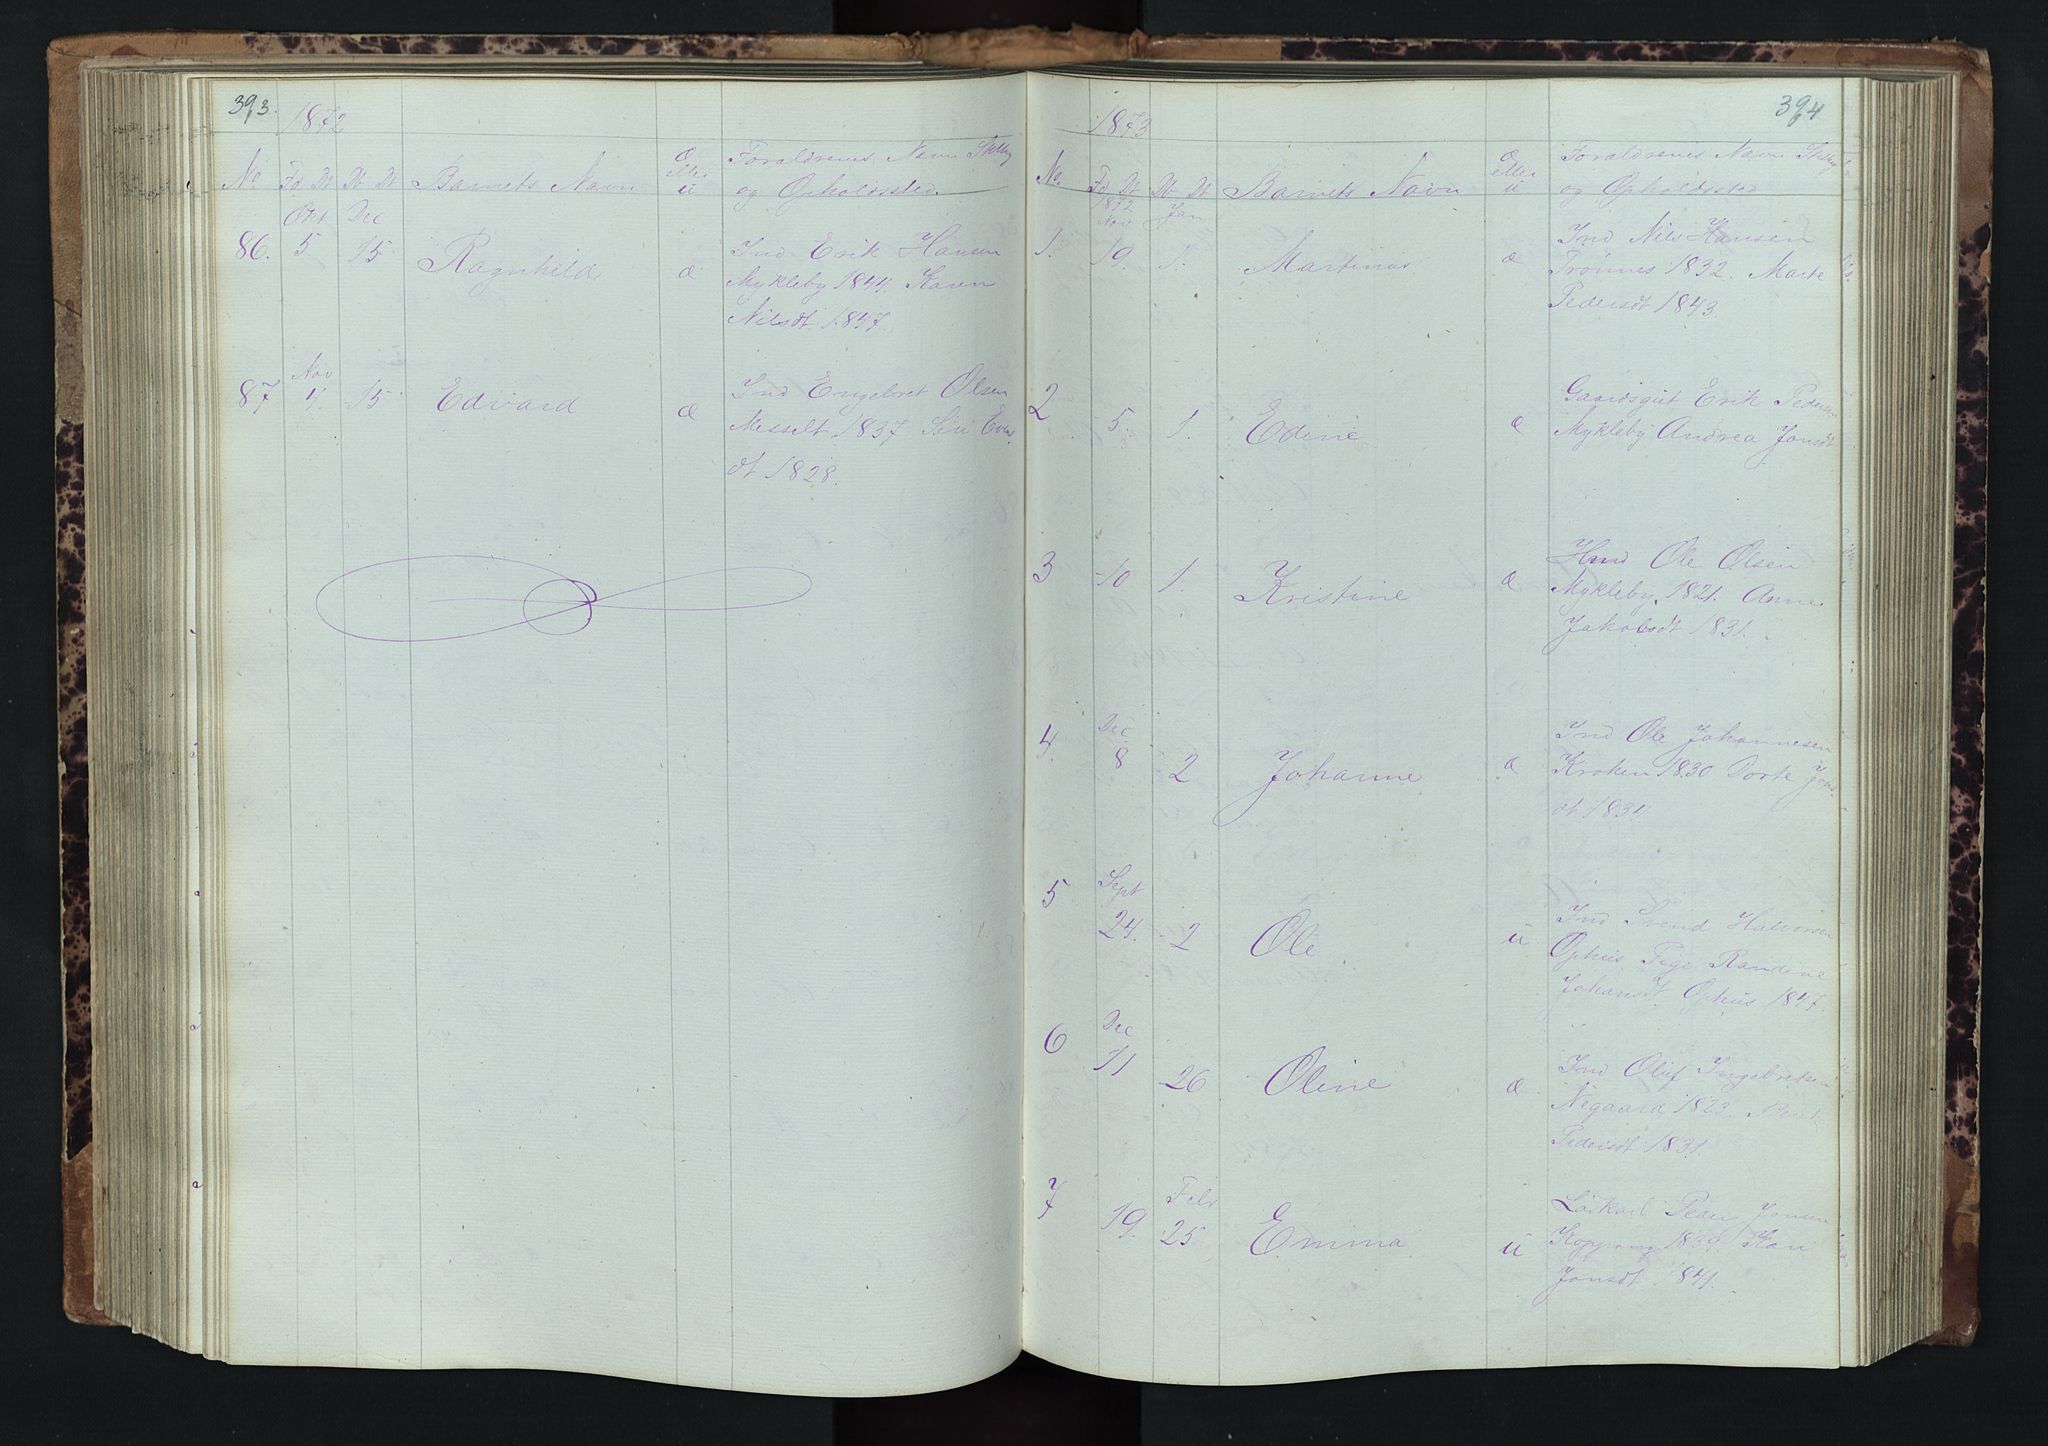 393.
1872
No Fd Dt Db Dt Barnets Navn Æ eller U Forældrenes Navn Stilling og Opholdssted
Okt Dec
86. 5 15 Ragnhild æ Ind Erik Hansen
Mykleby 1844. Karen
Nilsdt. 1847.
Nov
87 4. 15 Edvard æ Ind Engebret Olsen
Messelt 1837 Siri Evens
dt 1828.
394
1873
No. Fd Dt Db Dt Barnets Navn Æ eller U Forældrenes Navn Stilling og Opholdssted
1872
Nov Jan
1. 19. 1. Martinus æ Ind Nils Hansen
Trønnes 1832. Marte
Pedersdt 1843.
2 5. 1. Edine æ Gaardsgut Erik Pedersen
Mykleby Andrea Jonsdt
3 10 1. Kristine æ Hmd Ole Olsen
Mykleby 1821. Anne
Jakobsdt 1831.
Dec.
4. 8 2 Johanne æ Ind Ole Johannesen
Kroken 1830 Dorte
dt 1834
Sept
5 24. 2 Ole u Ind Svend Halvorsen
Ophus Pige Randine
Johansdt. Ophus 1847.
Dec
6 11 26 Oline æ Ind Oluf Ingebretsen
Negaard 1823
Pedersdt 1831.
Febr
7 19. 25 Emma u Løskarl Peder Jonsen
Koppang Kari
Jonsdt 1841.